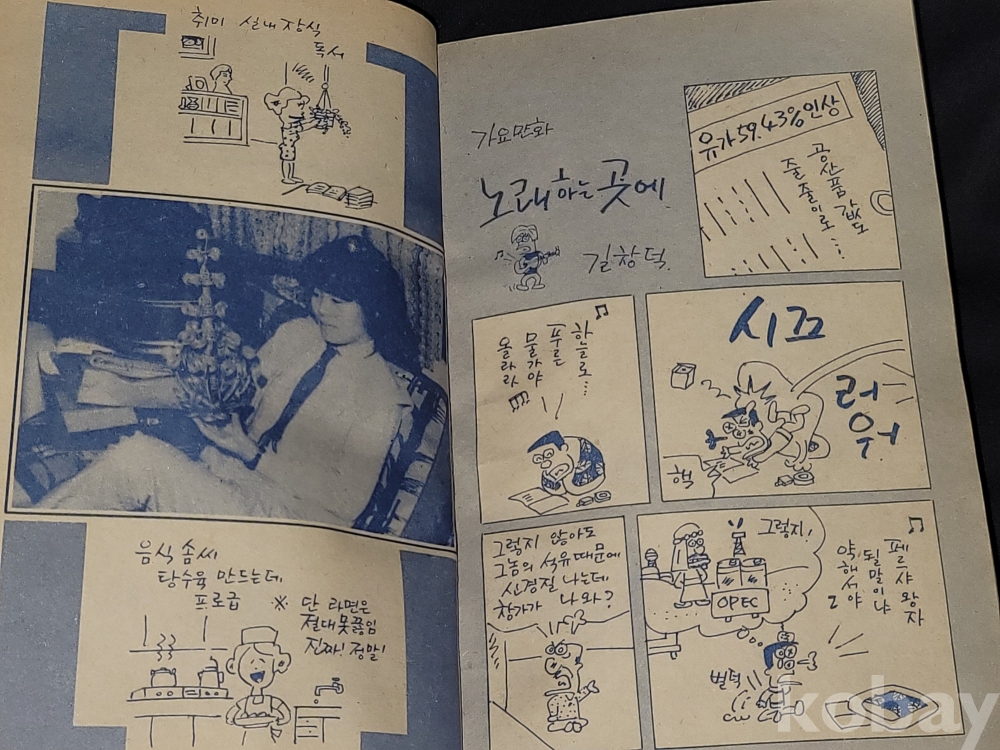 취미 실내장식
독서
음식 솜씨
탕수육 만드는데
프로급
※ 단 라면은
절대 못 끓임
진짜! 정말!
가요만화
노래하는 곳에
길창덕
유가 59.43% 인상
공산품 값도
줄줄이로…
하늘로…
푸른
물가야
올라라
시끄
러워
핵
그렇지 않아도
그놈의 석유때문에
신경질 나는데
창가가 나와?
그렇지!
OPEC
페르샤 왕자
될 말이냐
약해서야
벌떡
kobay